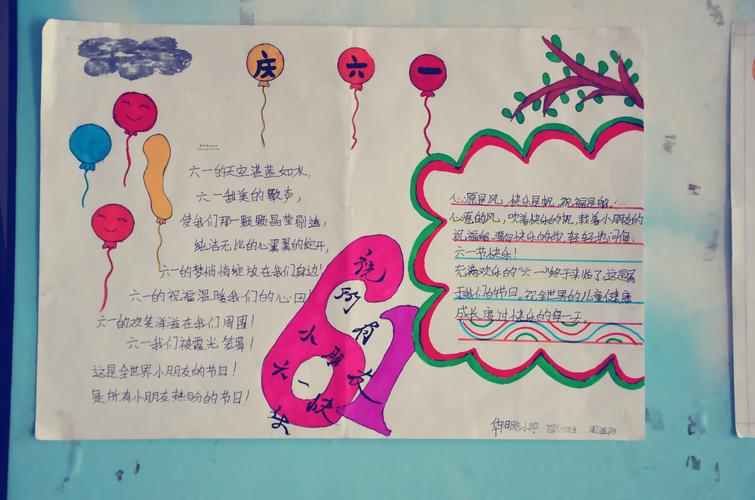 庆六一
六一的天空湛蓝如水,
六一甜美的歌声,
使我们那一颗颗晶莹剔透,
纯洁无比的心翼翼的绽开,
六一的梦悄悄绽放在我们身边!
六一的祝福温暖我们的心田!
六一的欢笑洋溢在我们周围!
六一我们被霞光笼罩!
这是全世界小朋友的节日!
是所有小朋友热盼的节日!
祝所有小朋友六一快
61
心愿是风,快乐是帆,祝福是船,
心愿的风,吹着快乐的帆,载着小朋友的
祝福船,漂向快乐的你,轻轻地问候:
六一节快乐!
充满欢乐的“六一”终于来临了,这是属
于我们的节日。祝全世界的儿童健康
成长,度过快乐的每一天。
小学 四